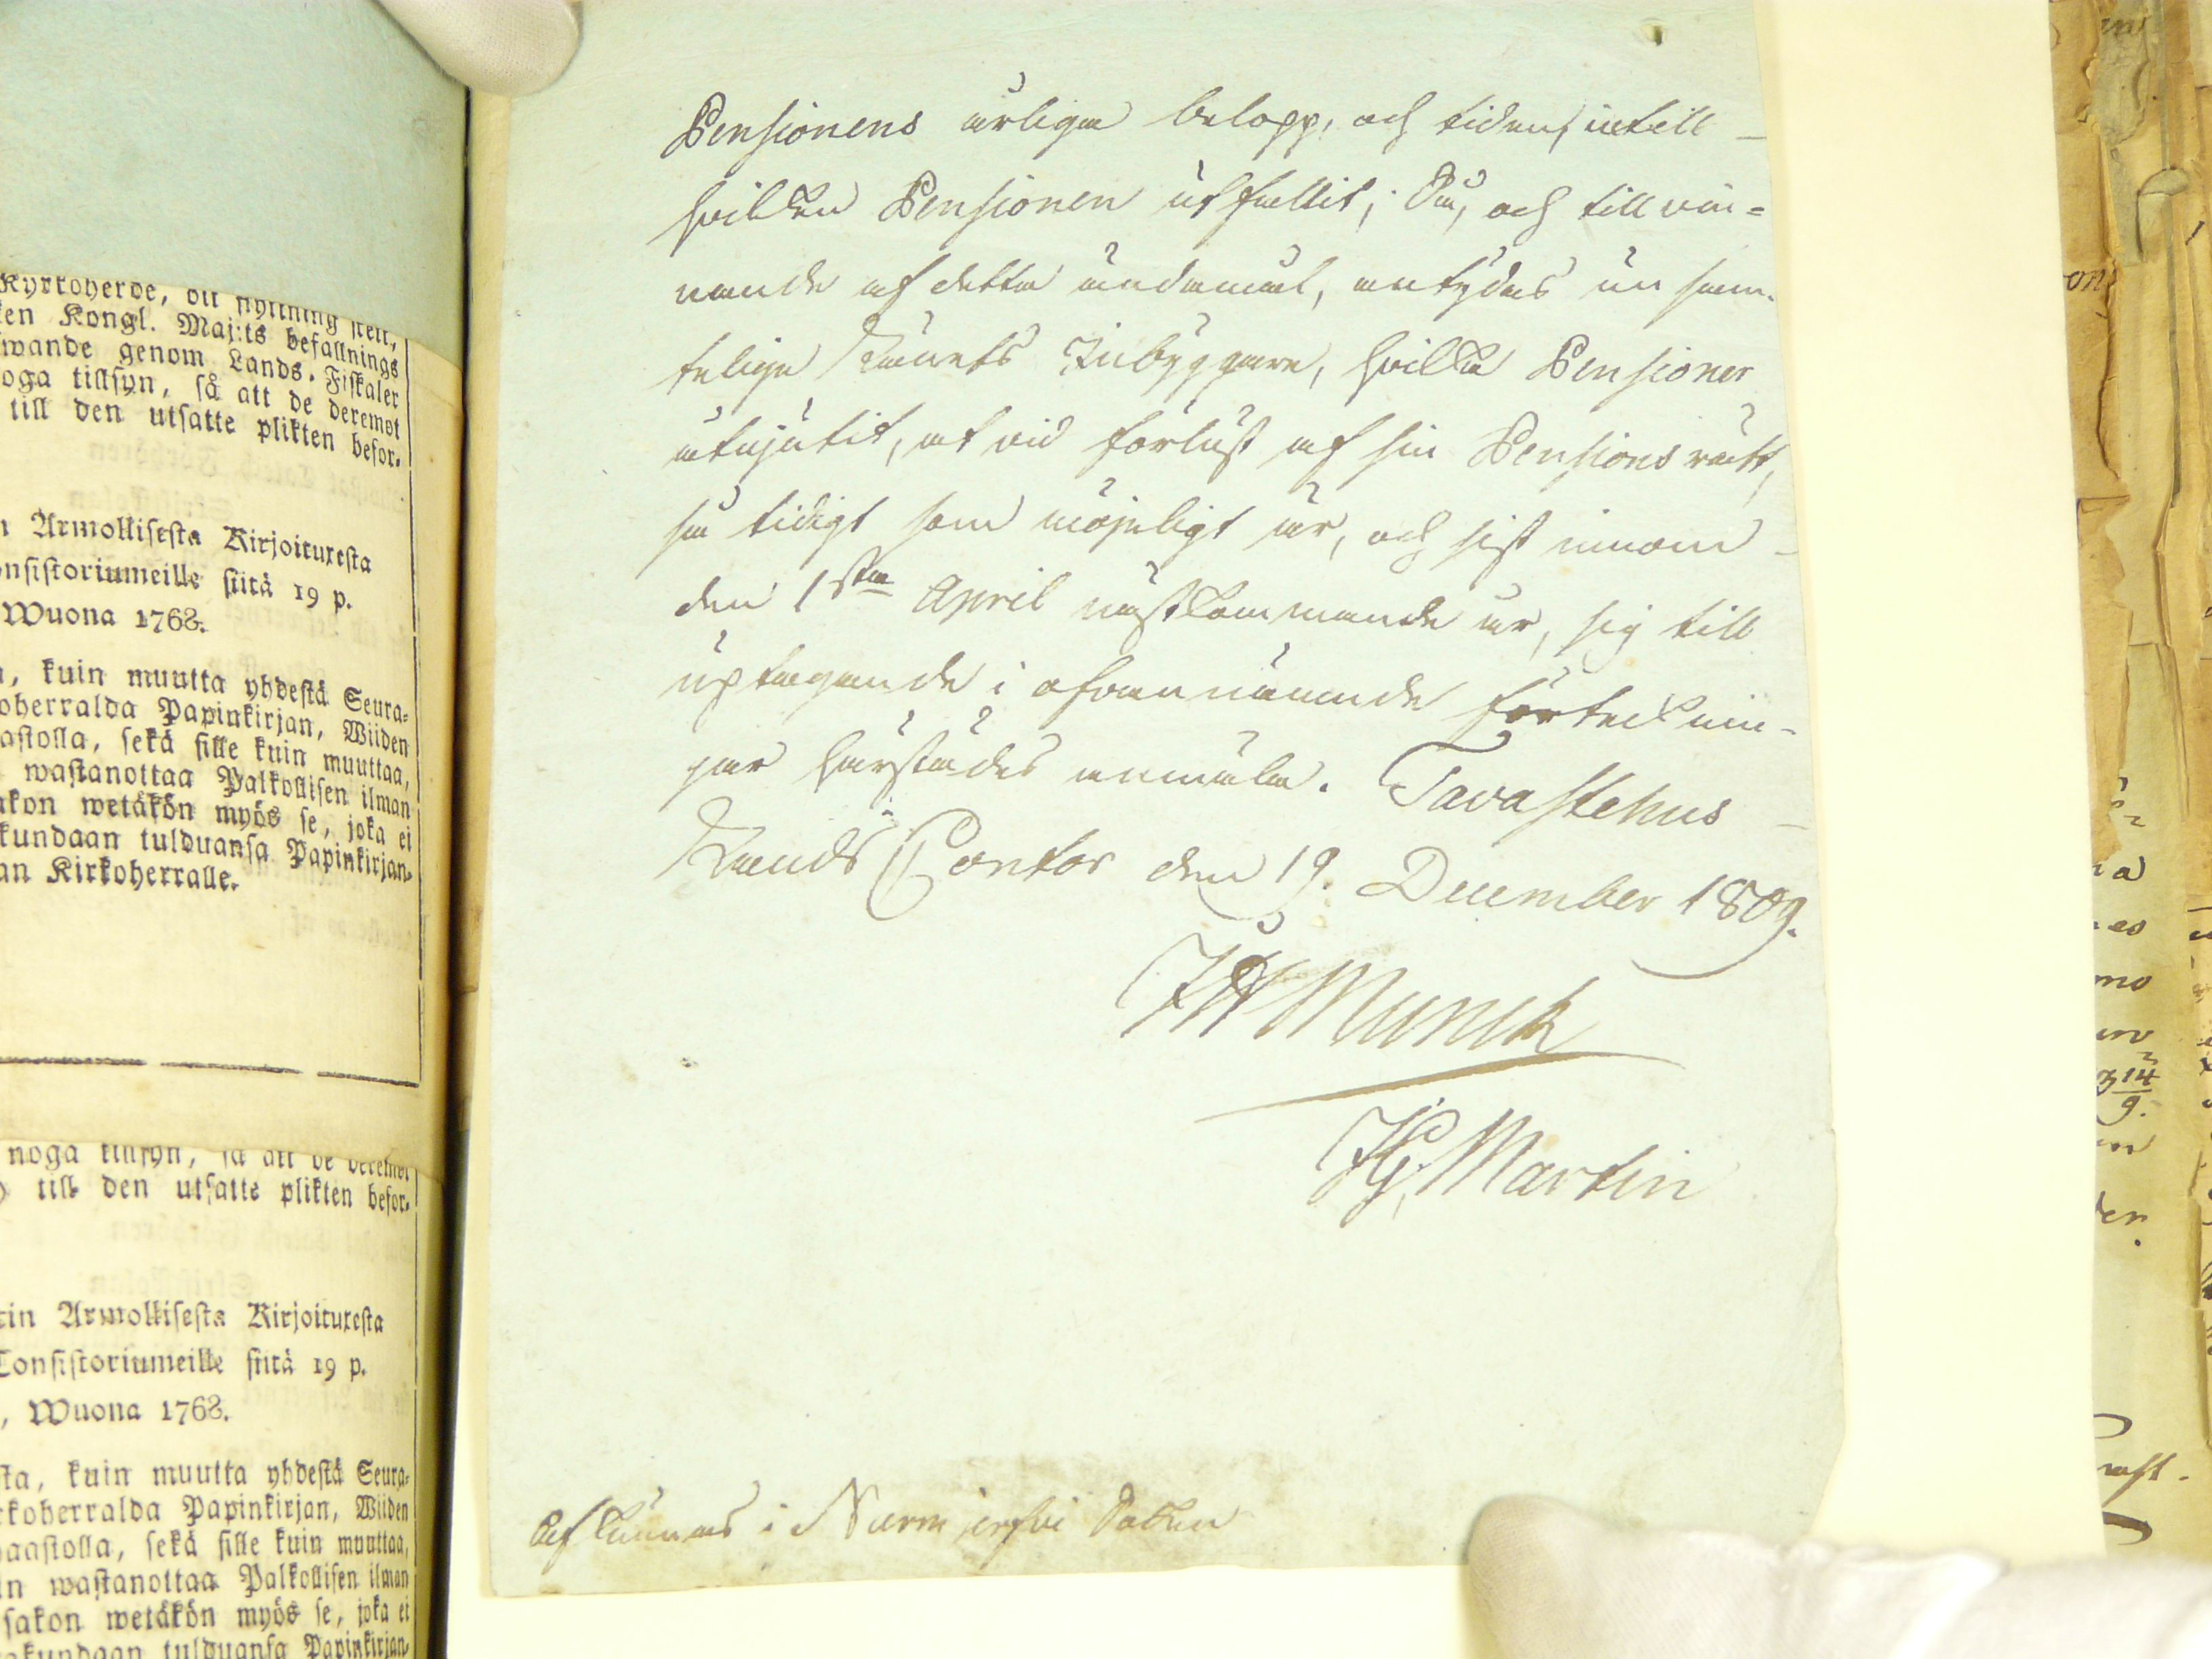 Kyrkoherde, vit flyttning skett,
ken Kongl. Maj:ts befallnings
wande genom Lands-Fiskaler
oga tillsyn, så att de deremot
till den utsatte plikten befor-
n Armollisesta Kirjoituxesta
onsistoriumeille siitä 19 p.
Wuona 1768.
, kuin muutta yhdestä Seura-
oherralda Papinkirjan, Wiiden
astolla, sekä sille kuin muuttaa,
wastanottaa Palkollisen ilman
akon wetäkön myös se, joka ei
kundaan tulduansa Papinkirjan-
an Kirkoherralle.
noga tillsyn, så att de deremot
till den utsatte plikten befor-
tin Armollisesta Kirjoituxesta
Consistoriumeille siitä 19 p.
, Wuona 1768.
sta, kuin muutta yhdestä Seura-
rkoherralda Papinkirjan, Wiiden
aastolla, sekä sille kuin muuttaa,
n wastanottaa Palkollisen ilman
sakon wetäkön myös se, joka ei
akundaan tulduansa Papinkirjan-
Pensionens årliga belopp, och tiden, intill
hvilken Pensionen utfallit; Du, och till vin-
nande af detta ändamål, antydas än sam-
telige Länets Inbyggare, hvilka Pensioner
åtnjutit, at vid förlust af sin Pensions rätt,
så tidigt som möjeligt är, och sist innom
den 1sta April nästkommande år, sig till
uptagande i ofvannämnde förteknin-
gar härstädes anmäla. Tavastehus
Lands Contor den 19. December 1809.
Munck
Martin
Aflämnas i Nurmijerfvi Socken